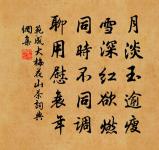 月淡玉逾瘦
雪深红欲燃
同時不同调
聊用慰衰年
范成大梅花山茶詞典
網集